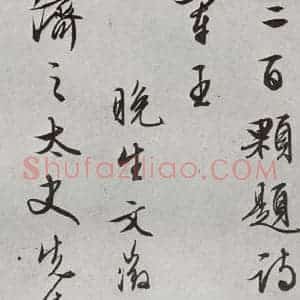 二百顆題詩
王
晚生文徵
濟之太史先
Shufaziliao.com